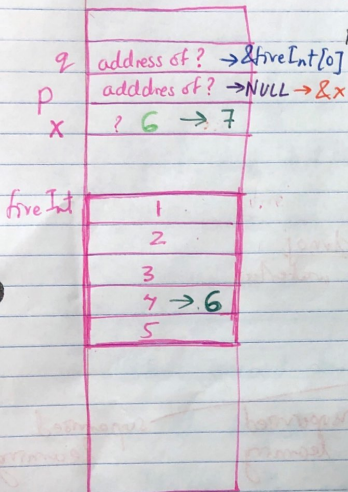 q address of ? → &fiveInt[0]
p adddres of ? → NULL → &x
x ? 6 → 7
fiveInt 1
2
3
4 → 6
5